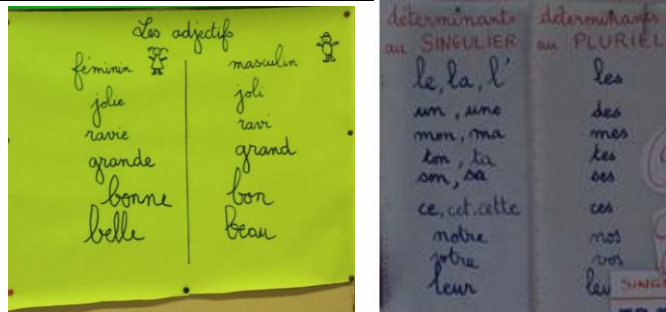 Les adjectifs
féminin masculin
jolie joli
ravie ravi
grande grand
bonne bon
belle beau
déterminants déterminants
au SINGULIER au PLURIEL
le, la, l' les
un, une des
mon, ma mes
ton, ta tes
son, sa ses
ce, cet, cette ces
notre nos
votre vos
leur